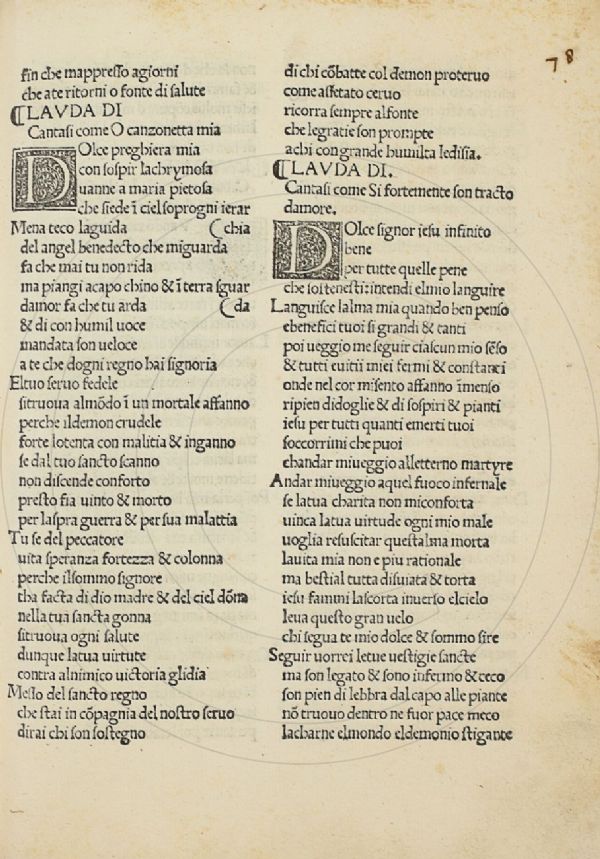 78
fin che mappresso agiorni
che ate ritorni o fonte di salute
⸿LAVDA DI
Cantasi come O canzonetta mia
DOlce preghiera mia
con sospir lachrymosa
uanne a maria pietosa
che siede ĩ ciel soprogni ierar
Mena teco laguida ⸿chia
del angel benedecto che miguarda
fa che mai tu non rida
ma piangi acapo chino & ĩ terra sguar
damor fa che tu arda ⸿da
& di con humil uoce
mandata son ueloce
a te che dogni regno hai signoria
Eltuo seruo fedele
sitruoua almõdo ĩ un mortale affanno
perche ildemon crudele
forte lotenta con malitia & inganno
se dal tuo sancto scanno
non discende conforto
presto fia uinto & morto
per laspra guerra & per sua malattia
Tu se del peccatore
uita speranza fortezza & colonna
perche ilsommo signore
tha facta di dio madre & del ciel dõna
nella tua sancta gonna
sitruoua ogni salute
dunque latua uirtute
contra alnimico uictoria glidia
Messo del sancto regno
che stai in cõpagnia del nostro seruo
dirai chi son sostegno
di chi cõbatte col demon proteruo
come assetato ceruo
ricorra sempre alfonte
che legratie son prompte
achi con grande humilta ledisia.
⸿LAVDA DI.
Cantasi come Si fortemente son tracto
damore.
DOlce signor iesu infinito
bene
per tutte quelle pene
che sofenesti: intendi elmio languire
Languisce lalma mia quando ben penso
ebenefici tuoi si grandi & tanti
poi ueggio me seguir ciascun mio sẽso
& tutti euitii miei fermi & constanti
onde nel cor misento affanno ĩmenso
ripien didoglie & di sospiri & pianti
iesu per tutti quanti emerti tuoi
soccorrimi che puoi
chandar miueggio alletterno martyre
Andar miueggio aquel fuoco infernale
se latua charita non miconforta
uinca latua uirtude ogni mio male
uoglia resuscitar questalma morta
lauita mia non e piu rationale
ma bestial tutta disuiata & torta
iesu fammi lascorta inuerso elcielo
leua questo gran uelo
chi segua te mio dolce & sommo sire
Seguir uorrei letue uestigie sancte
ma son legato & sono infermo & ceco
son pien di lebbra dal capo alle piante
nõ truouo dentro ne fuor pace meco
lacharne elmondo eldemonio stigante